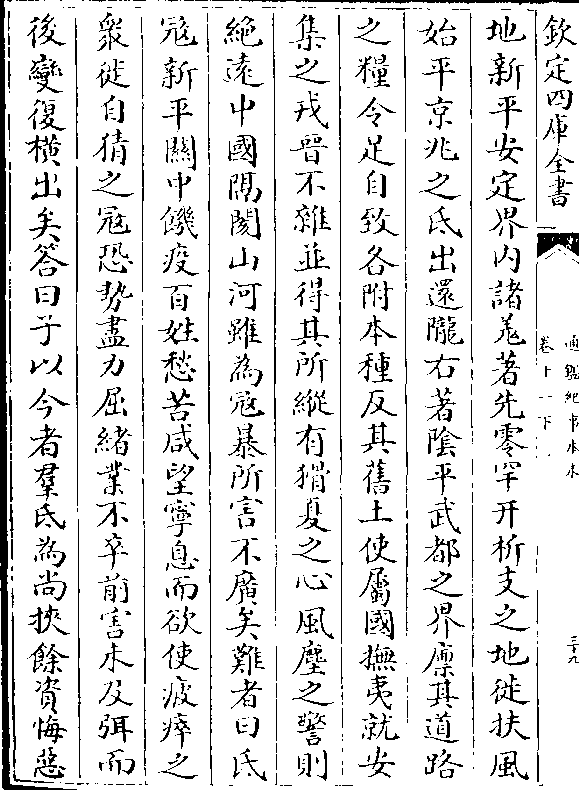 欽定四庫全書
通鑑紀事本末
卷十一下
三十九
地新平安定界内諸羌著先零罕幵析支之地徙扶風
始平京兆之氐出還隴右著陰平武都之界廪其道路
之糧令足自致各附本種反其舊土使屬國撫夷就安
集之戎晉不雜並得其所縱有猾夏之心風塵之警則
絶逺中國隔閡山河雖為冦暴所害不廣矣難者曰氐
冦新平關中饑疫百姓愁苦咸望寧息而欲使疲瘁之
衆徙自猜之冦恐勢盡力屈緒業不卒前害未及弭而
後變復橫出矣答曰子以今者羣氐為尚挾餘資悔惡